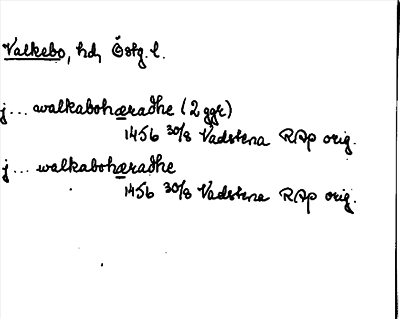 Valkebo, hd, Östg. l.
j... walkabohæradhe (2 ggr)
1456 30/8 Vadstena RAp orig.
j... walkabohæradhe
1456 30/8 Vadstena RAp orig.